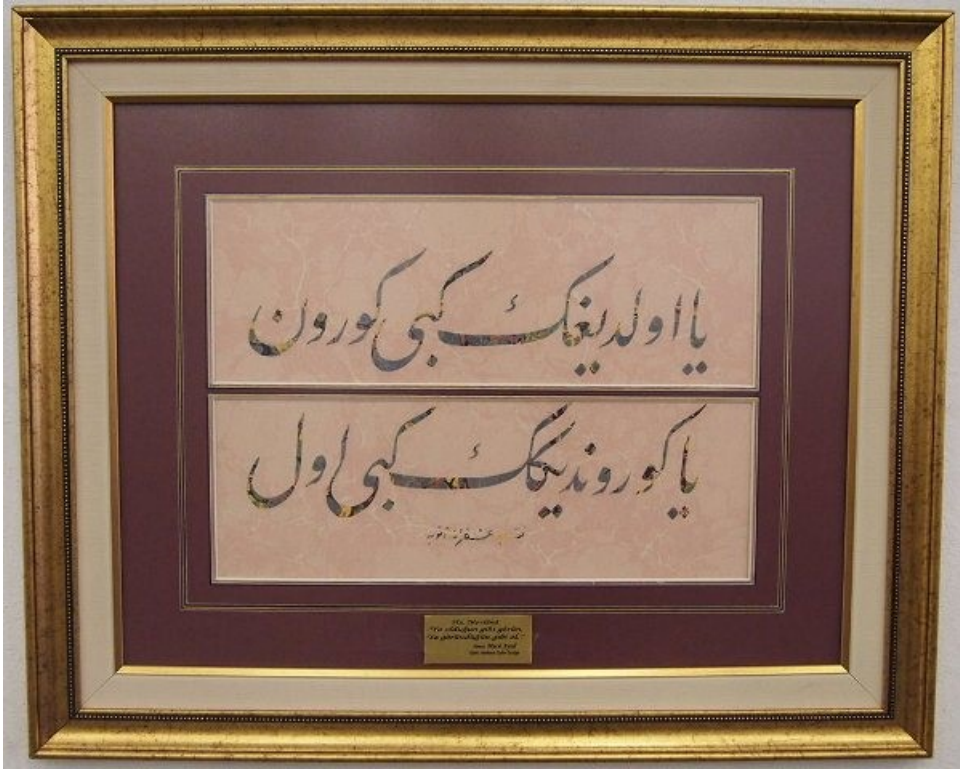 يا اولديغڭ كبى كورون
يا كوروندیگڭ كبى اول
Hz. Mevlânâ
"Ya olduğun gibi görün,
Ya göründüğün gibi ol."